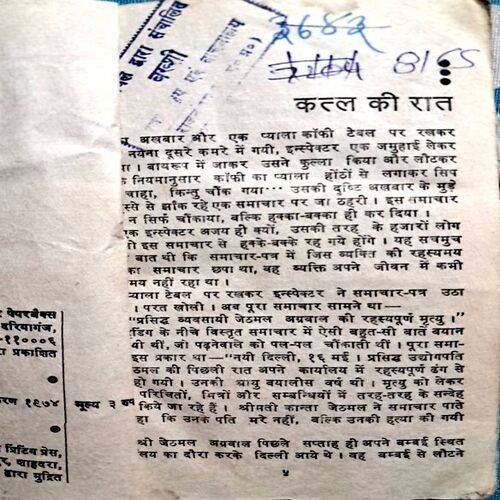 द्वारा संचालित
बख्शी
३६४३
8165
कत्ल की रात
अखबार और एक प्याला कॉफी टेबल पर रखकर
नयना दूसरे कमरे में गयी, इन्स्पेक्टर एक जमुहाई लेकर
। बाथरूम में जाकर उसने कुल्ला किया और लौटकर
नियमानुसार कॉफी का प्याला होंठों से लगाकर सिप
चाहा, किन्तु चौंक गया··· उसकी दृष्टि अखबार के मुड़े
स्से से झाँक रहे एक समाचार पर जा ठहरी। इस समाचार
न सिर्फ चौंकाया, बल्कि हुक्का-बक्का ही कर दिया।
एक इन्स्पेक्टर अजय ही क्यों, उसकी तरह के हजारों लोग
ी इस समाचार से हुक्के-बक्के रह गये होंगे। यह सचमुच
बात थी कि समाचार-पत्र में जिस व्यक्ति की रहस्यमय
का समाचार छपा था, वह व्यक्ति अपने जीवन में कभी
मय नहीं रहा था।
याला टेबल पर रखकर इन्स्पेक्टर ने समाचार-पत्र उठा
। परत खोली। अब पूरा समाचार सामने था—
"प्रसिद्ध व्यवसायी जेठमल अग्रवाल की रहस्यपूर्ण मृत्यु।"
डिंग के नीचे विस्तृत समाचार में ऐसी बहुत-सी बातें बयान
यी थीं, जो पढ़नेवाले को पल-पल चौंकाती थीं। पूरा समा-
इस प्रकार था—"नयी दिल्ली, १६ मई। प्रसिद्ध उद्योगपति
ठमल की पिछली रात अपने कार्यालय में रहस्यपूर्ण ढंग से
हो गयी। उनकी आयु बयालीस वर्ष थी। मृत्यु को लेकर
परिचितों, मित्रों और सम्बन्धियों में तरह-तरह के सन्देह
किये जा रहे हैं। श्रीमती कान्ता जेठमल ने समाचार पाते
हा कि उनके पति मरे नहीं, बल्कि उनकी हत्या की गयी
श्री जेठमल अग्रवाल पिछले सप्ताह ही अपने बम्बई स्थित
लय का दौरा करके दिल्ली आये थे। वह बम्बई से लौटने
५
पेपरबैक्स
दरियागंज,
-११०००६
प्रकाशित
करण १९७४
मूल्य ३ रुपये
प्रिंटिंग प्रेस,
शाहदरा,
द्वारा मुद्रित